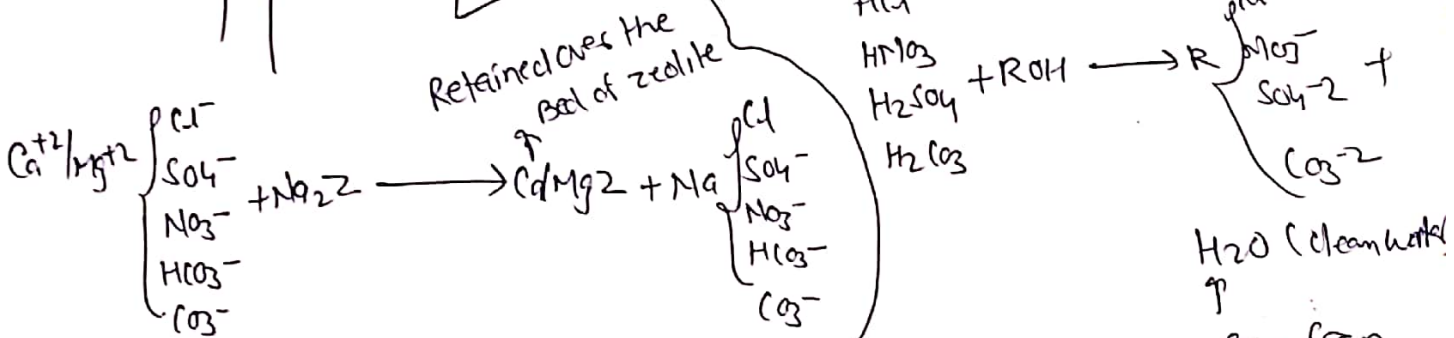 Retained over the
Bed of zeolite
↑
Ca+2/Mg+2 { Cl-
SO4-
NO3-
HCO3-
CO3-
+Na2Z → Ca/MgZ + Na { Cl
SO4-
NO3-
HCO3-
CO3-
HNO3
H2SO4
H2CO3
+ ROH → R { NO3-
SO4-2
CO3-2
+
H2O (clean water
↑